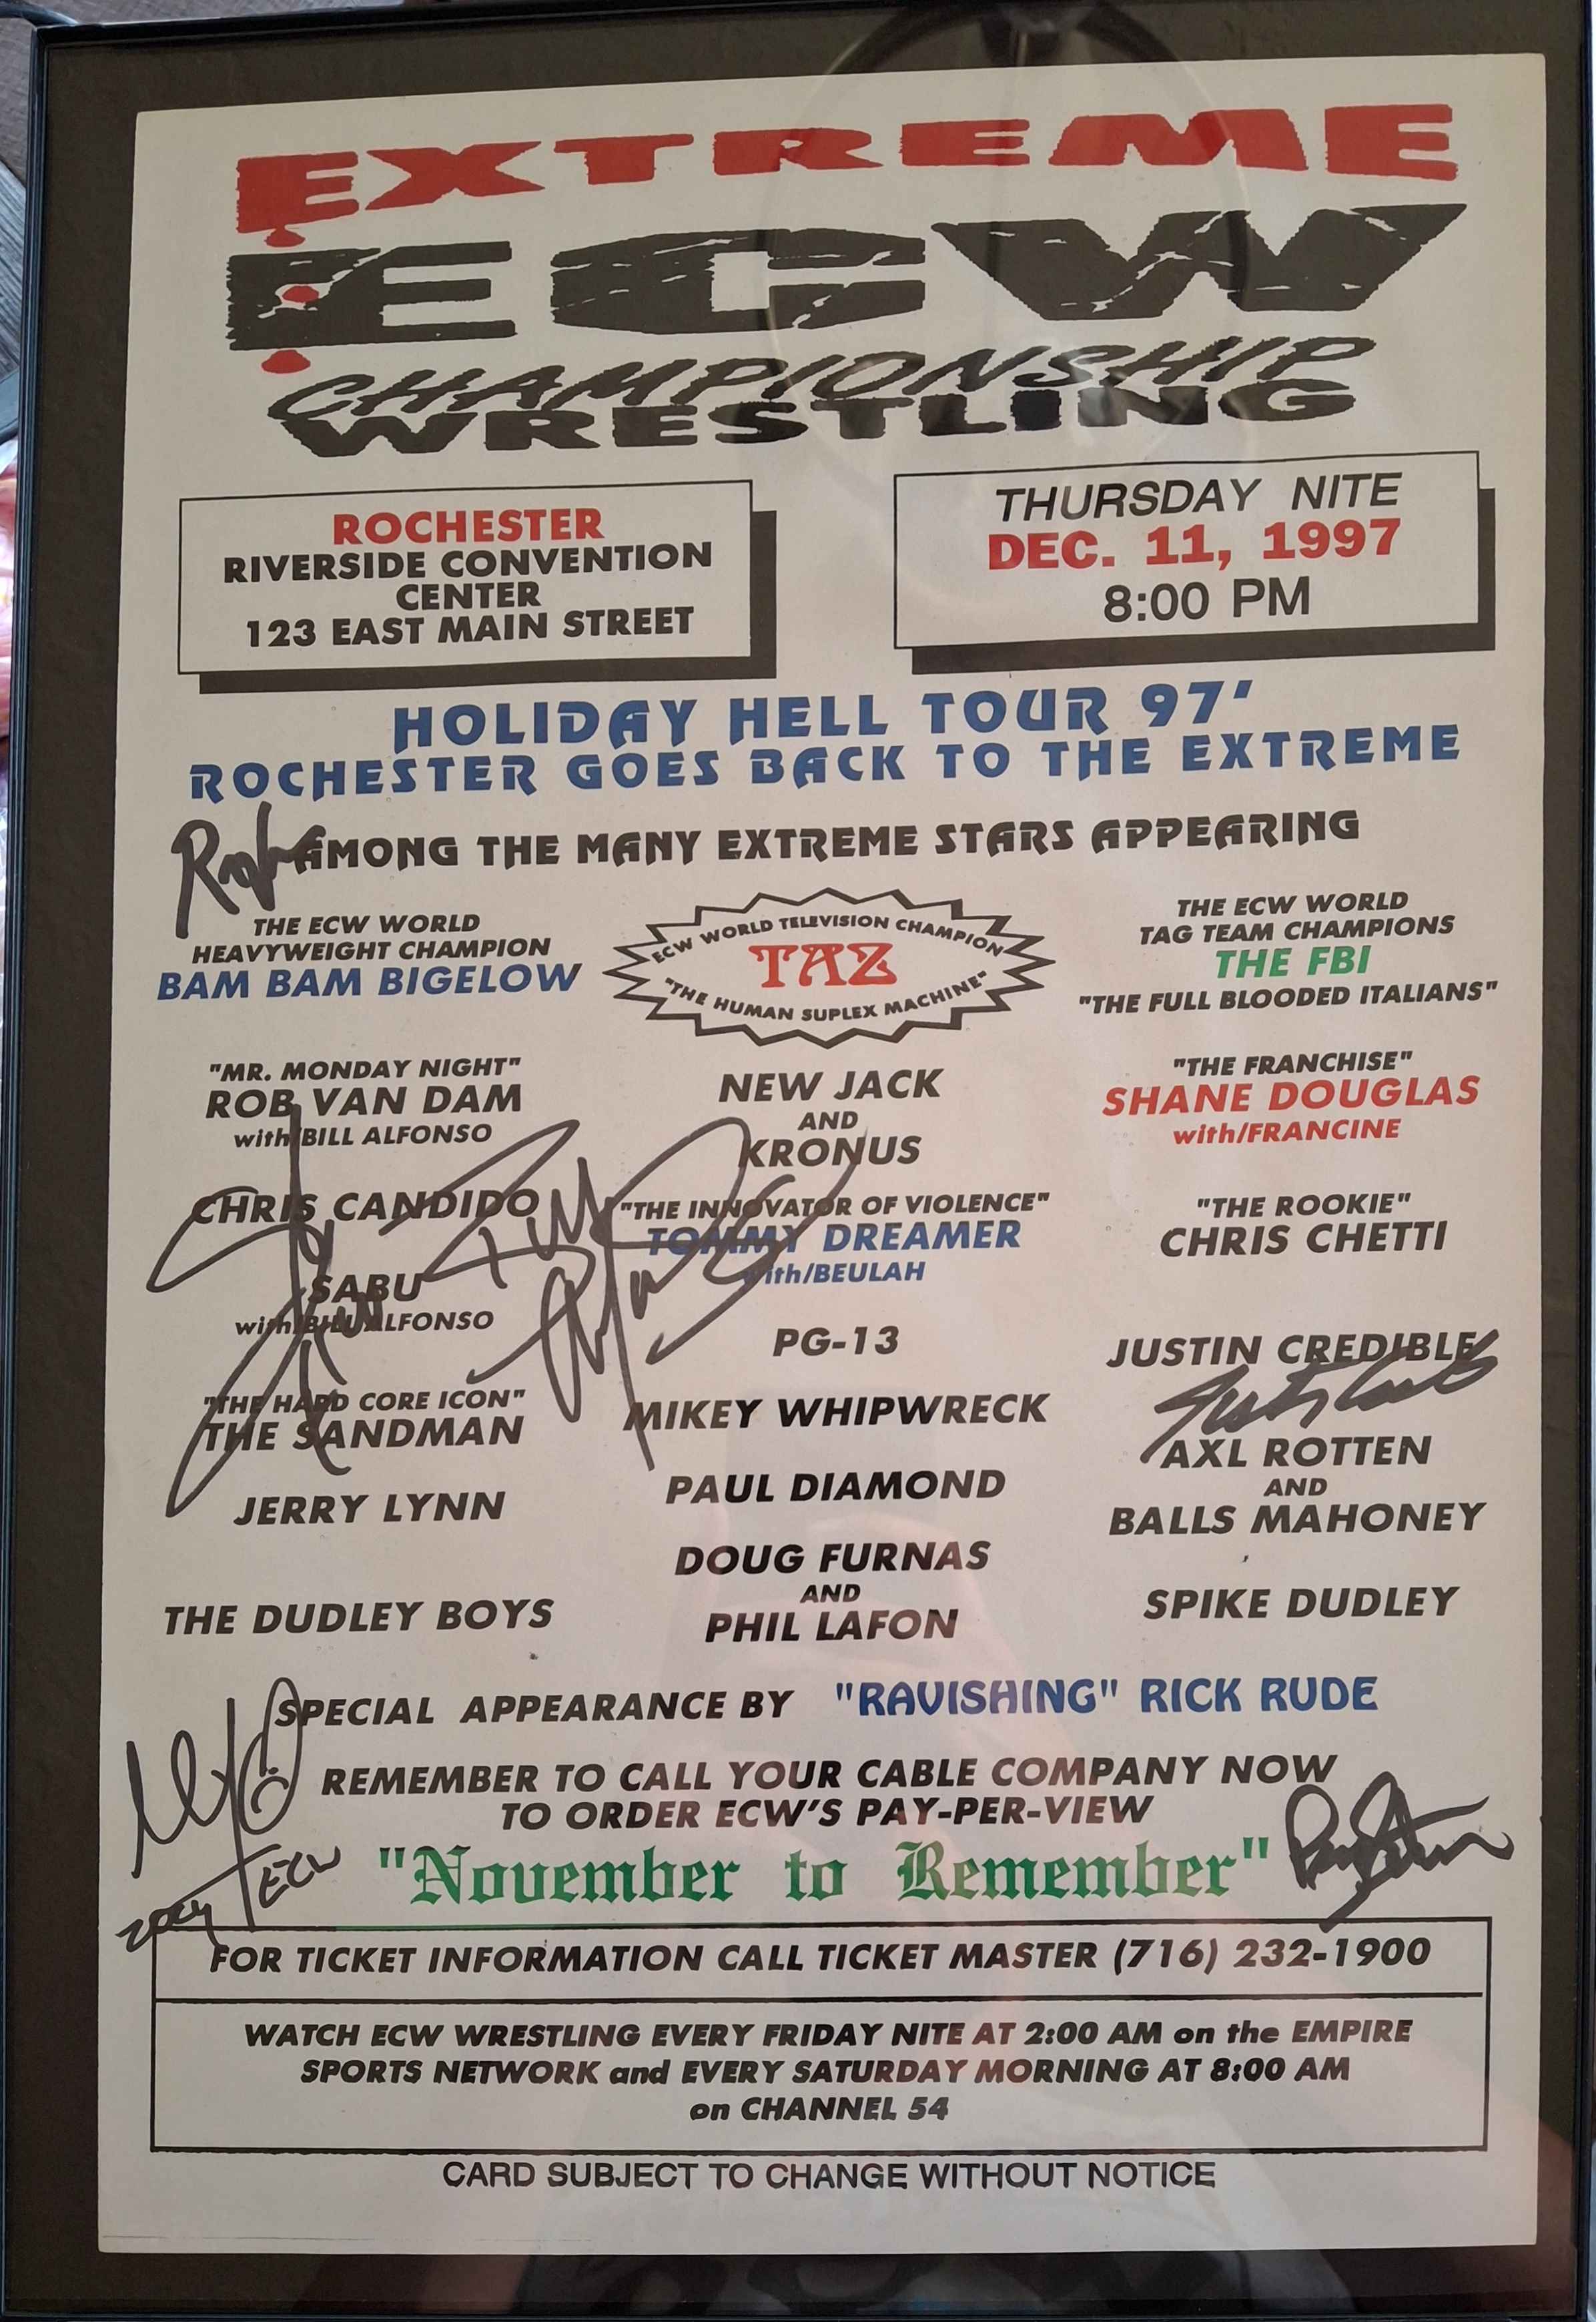 EXTREME
ECW
CHAMPIONSHIP
WRESTLING
ROCHESTER
RIVERSIDE CONVENTION
CENTER
123 EAST MAIN STREET
THURSDAY NITE
DEC. 11, 1997
8:00 PM
HOLIDAY HELL TOUR 97'
ROCHESTER GOES BACK TO THE EXTREME
AMONG THE MANY EXTREME STARS APPEARING
THE ECW WORLD
HEAVYWEIGHT CHAMPION
BAM BAM BIGELOW
ECW WORLD TELEVISION CHAMPION
TAZ
"THE HUMAN SUPLEX MACHINE"
THE ECW WORLD
TAG TEAM CHAMPIONS
THE FBI
"THE FULL BLOODED ITALIANS"
"MR. MONDAY NIGHT"
ROB VAN DAM
with/BILL ALFONSO
NEW JACK
AND
KRONUS
"THE FRANCHISE"
SHANE DOUGLAS
with/FRANCINE
CHRIS CANDIDO
"THE INNOVATOR OF VIOLENCE"
TOMMY DREAMER
with/BEULAH
"THE ROOKIE"
CHRIS CHETTI
SABU
with/BILL ALFONSO
PG-13
JUSTIN CREDIBLE
"THE HARD CORE ICON"
THE SANDMAN
MIKEY WHIPWRECK
AXL ROTTEN
AND
BALLS MAHONEY
JERRY LYNN
PAUL DIAMOND
DOUG FURNAS
AND
PHIL LAFON
THE DUDLEY BOYS
SPIKE DUDLEY
SPECIAL APPEARANCE BY "RAVISHING" RICK RUDE
REMEMBER TO CALL YOUR CABLE COMPANY NOW
TO ORDER ECW'S PAY-PER-VIEW
"November to Remember"
ECW
FOR TICKET INFORMATION CALL TICKET MASTER (716) 232-1900
WATCH ECW WRESTLING EVERY FRIDAY NITE AT 2:00 AM on the EMPIRE
SPORTS NETWORK and EVERY SATURDAY MORNING AT 8:00 AM
on CHANNEL 54
CARD SUBJECT TO CHANGE WITHOUT NOTICE